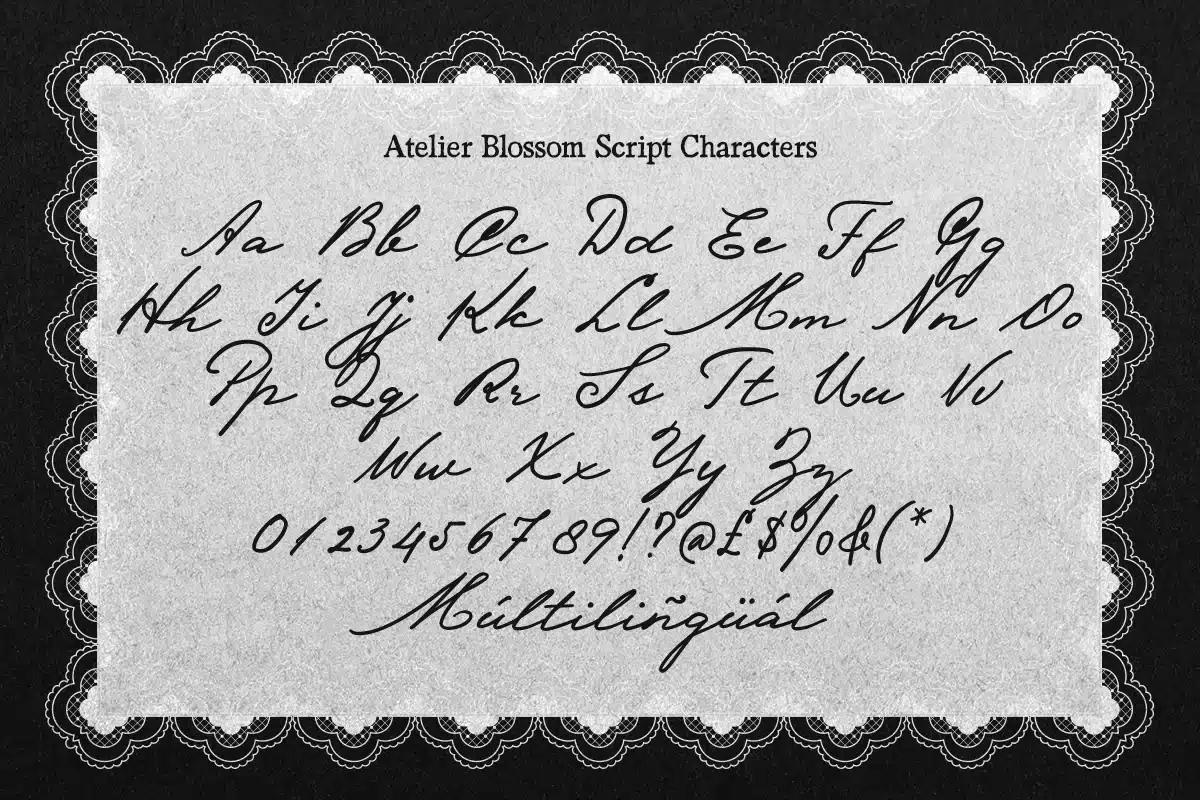 Atelier Blossom Script Characters
Aa Bb Cc Dd Ee Ff Gg
Hh Ii Jj Kk Ll Mm Nn Oo
Pp Qq Rr Ss Tt Uu Vv
Ww Xx Yy Zz
0123456789!?@£$%&(*)
Múltiliñgüál